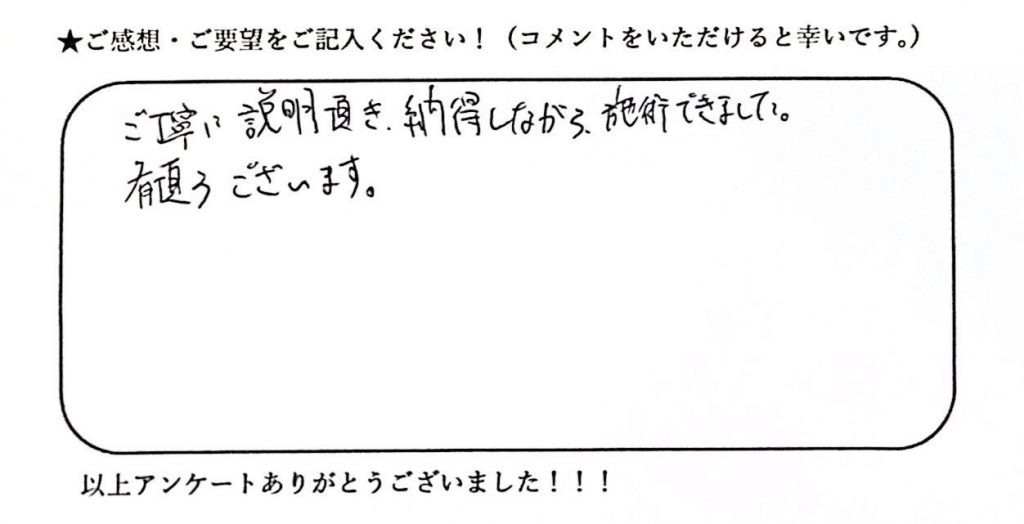 ★ご感想・ご要望をご記入ください！（コメントをいただけると幸いです。）
ご丁寧に説明頂き、納得しながら、施術できました。
有頂うございます。
以上アンケートありがとうございました！！！